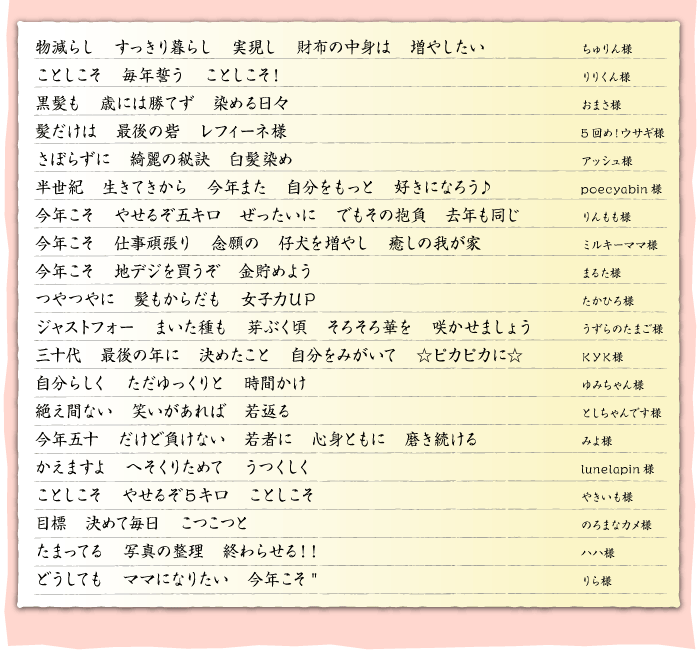 物減らし　すっきり暮らし　実現し　財布の中身は　増やしたい　ちゅりん様
ことしこそ　毎年誓う　ことしこそ！　りりくん様
黒髪も　歳には勝てず　染める日々　おまさ様
髪だけは　最後の砦　レフィーネ様　5回め！ウサギ様
さぼらずに　綺麗の秘訣　白髪染め　アッシュ様
半世紀　生きてきから　今年また　自分をもっと　好きになろう♪　poecyabin様
今年こそ　やせるぞ五キロ　ぜったいに　でもその抱負　去年も同じ　りんもも様
今年こそ　仕事頑張り　念願の　仔犬を増やし　癒しの我が家　ミルキーママ様
今年こそ　地デジを買うぞ　金貯めよう　まるた様
つやつやに　髪もからだも　女子力UP　たかひろ様
ジャストフォー　まいた種も　芽ぶく頃　そろそろ華を　咲かせましょう　うずらのたまご様
三十代　最後の年に　決めたこと　自分をみがいて　☆ピカピカに☆　KYK様
自分らしく　ただゆっくりと　時間かけ　ゆみちゃん様
絶え間ない　笑いがあれば　若返る　としちゃんです様
今年五十　だけど負けない　若者に　心身ともに　磨き続ける　みよ様
かえますよ　へそくりためて　うつくしく　lunelapin様
ことしこそ　やせるぞ5キロ　ことしこそ　やきいも様
目標　決めて毎日　こつこつと　のろまなカメ様
たまってる　写真の整理　終わらせる！！　ハハ様
どうしても　ママになりたい　今年こそ"　りら様